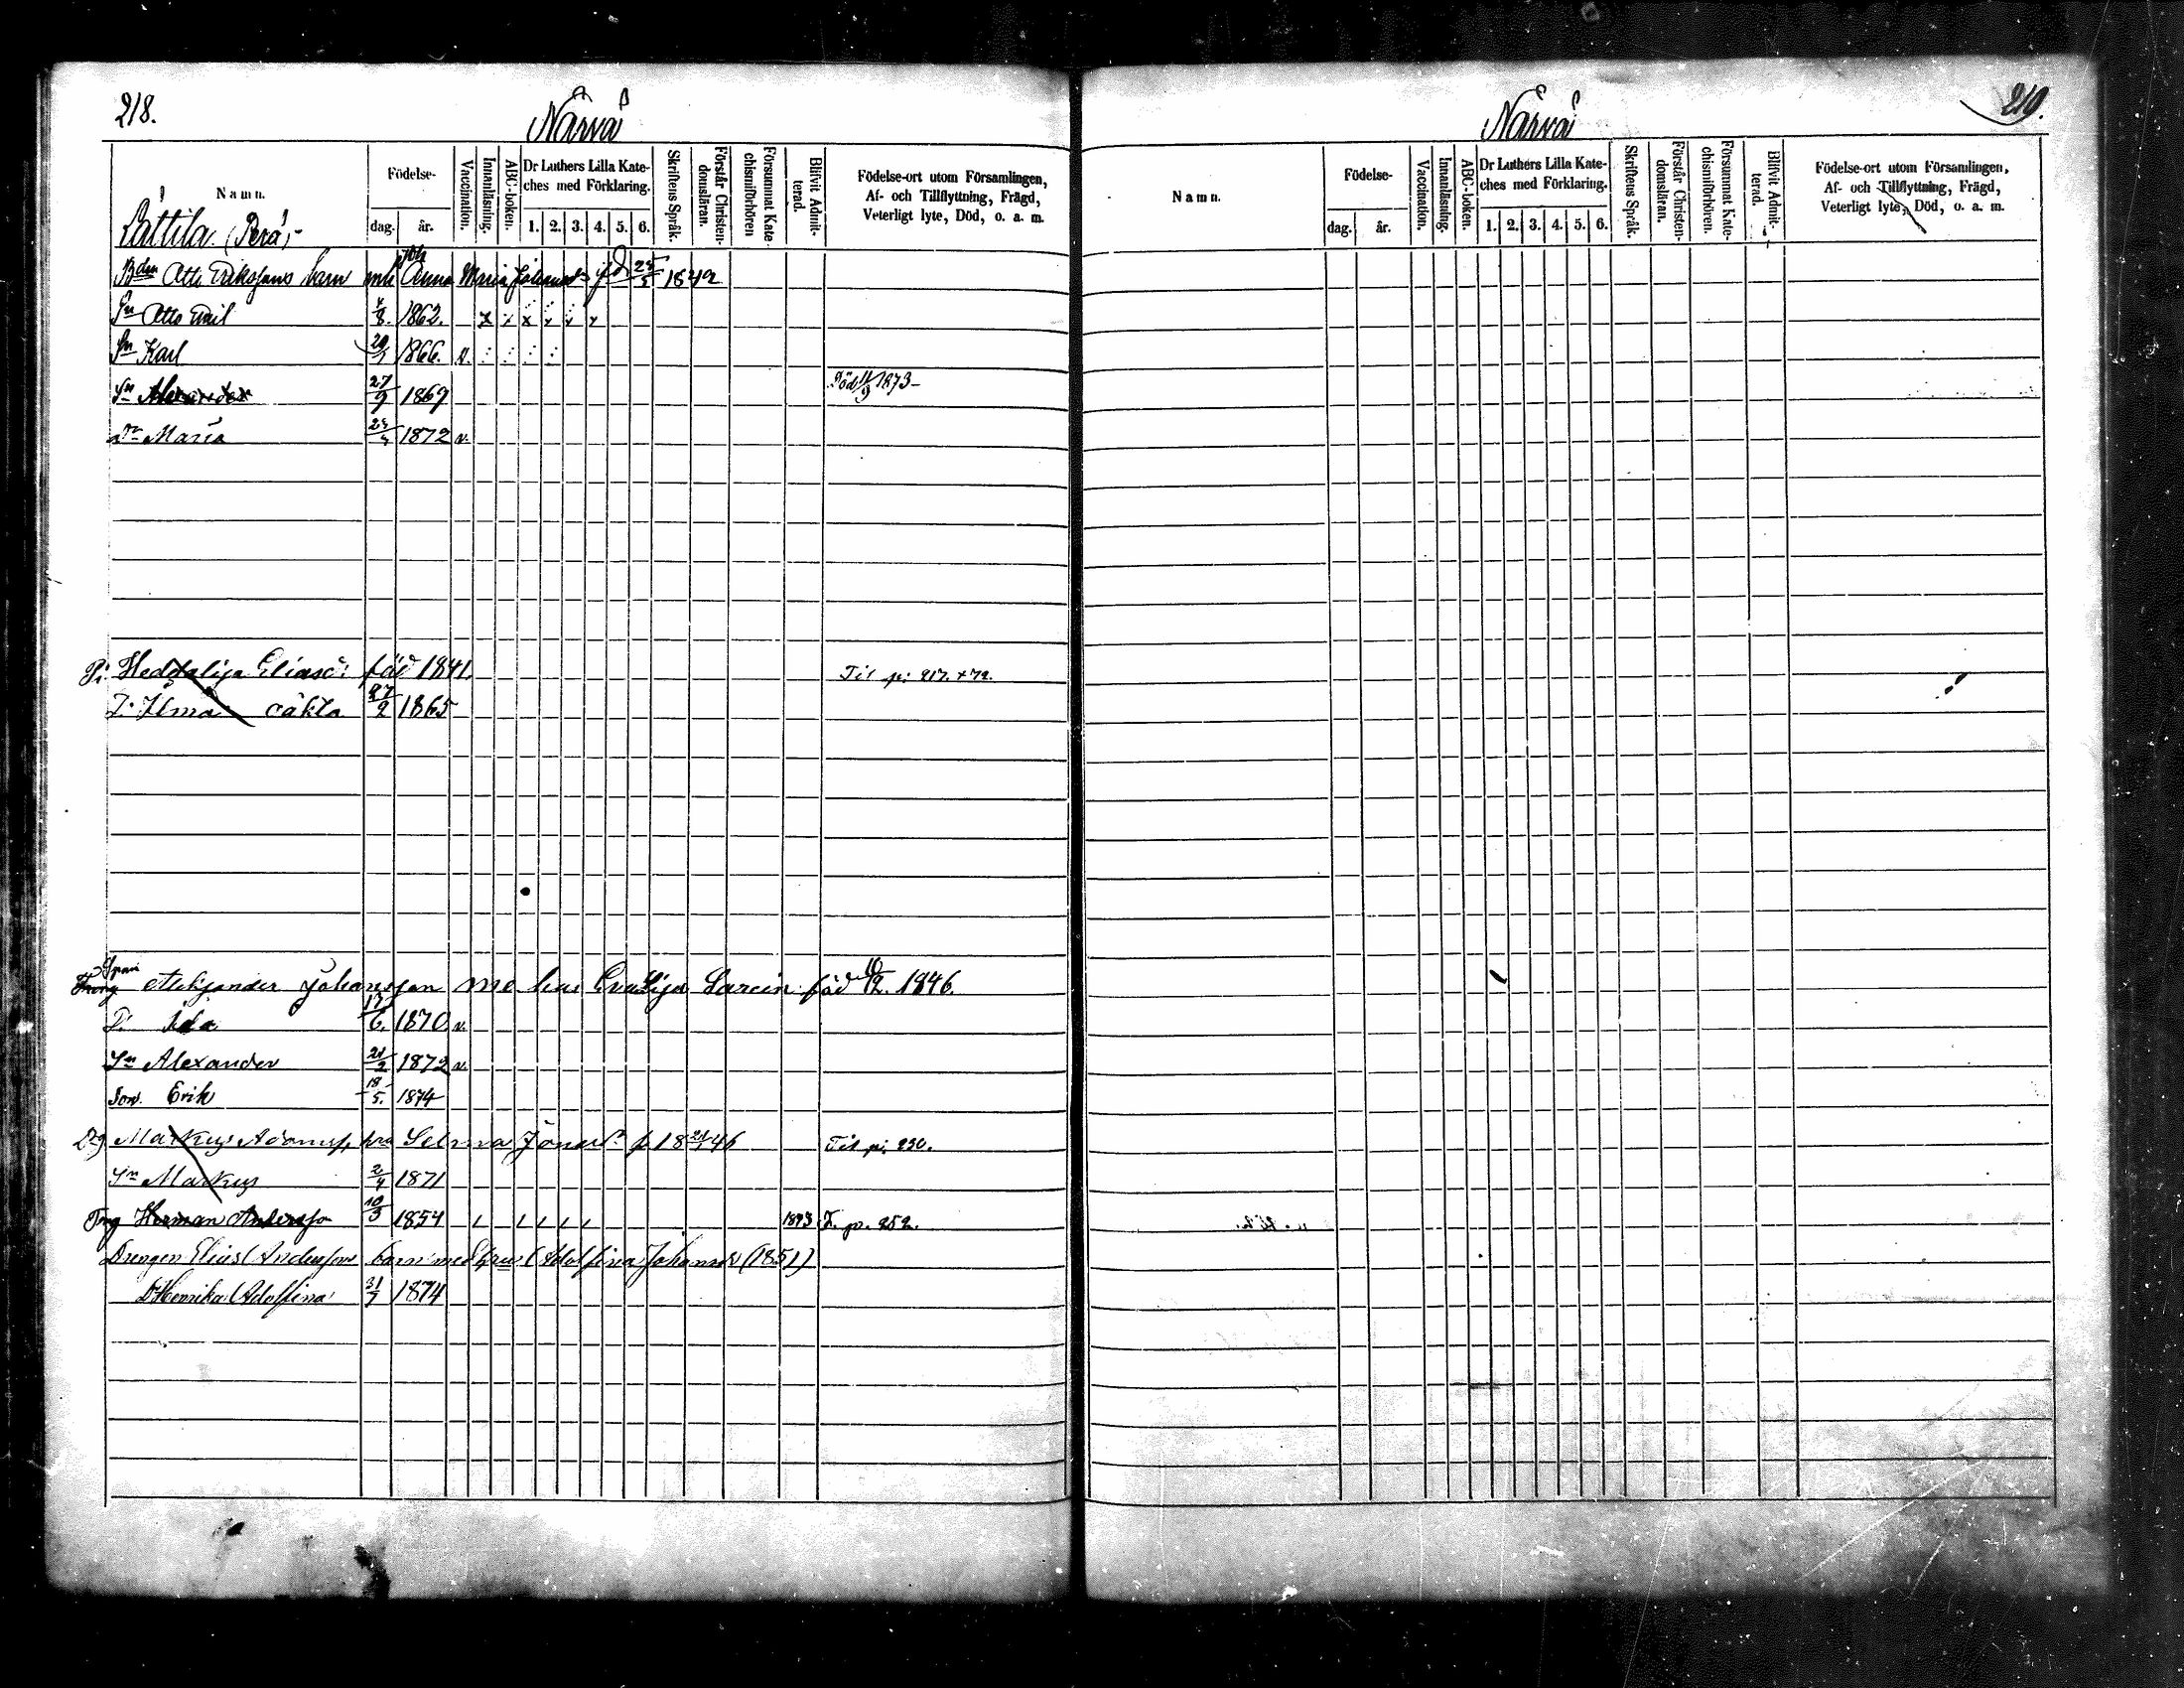 218.
Närvä
Namn.
Födelse-
dag.
år.
Vaccination.
Innanläsning.
ABC-boken.
Dr Luthers Lilla Kate-
ches med Förklaring.
1. 2. 3. 4. 5. 6.
Skriftens Språk.
Förstår Christen-
domsläran.
Försummat Kate-
chismiförhören
Blifvit Admit-
terad.
Födelse-ort utom Församlingen,
Af- och Tillflyttning, Frägd,
Veterligt lyte, Död, o. a. m.
Påttila (Perä)
Bdn Otto Erikssons barn Anna Maria Johansdr 1842
Sn Otto Emil 4/8. 1862. x x x x x x
Sn Karl 20/1 1866. v.
Sn Alexander 27/9 1869 Död 11/9 1873
Dr Maria 1872 v.
Pi. Hedda Lisa Eliasd: föd 1841. Til p: 217. + 72.
D. Ilma oäkta 27/2 1865
Alexsander Johansson me hus Eva Lisa Larsin föd 10/12. 1846.
D. Ida 17/6. 1870 v.
Sn Alexander 21/2 1872 v.
Son. Erik 18/5. 1874
Drg Markus Adamss. hra Selma Jonasdr f. 18 21/1 46 Til p: 230.
Sn Markus 2/4 1871
Drg Herman Andersso 10/3 1854 1873 T. p. 252.
Drengen Elias Anderssons barn med hstru Adolfina Johansdr (1851)
D Henrika Adolfina 31/7 1874
219.
Närvä
Namn.
Födelse-
dag.
år.
Vaccination.
Innanläsning.
ABC-boken.
Dr Luthers Lilla Kate-
ches med Förklaring.
1. 2. 3. 4. 5. 6.
Skriftens Språk.
Förstår Christen-
domsläran.
Försummat Kate-
chismiförhören.
Blifvit Admit-
terad.
Födelse-ort utom Församlingen,
Af- och Tillflyttning, Frägd,
Veterligt lyte, Död, o. a. m.